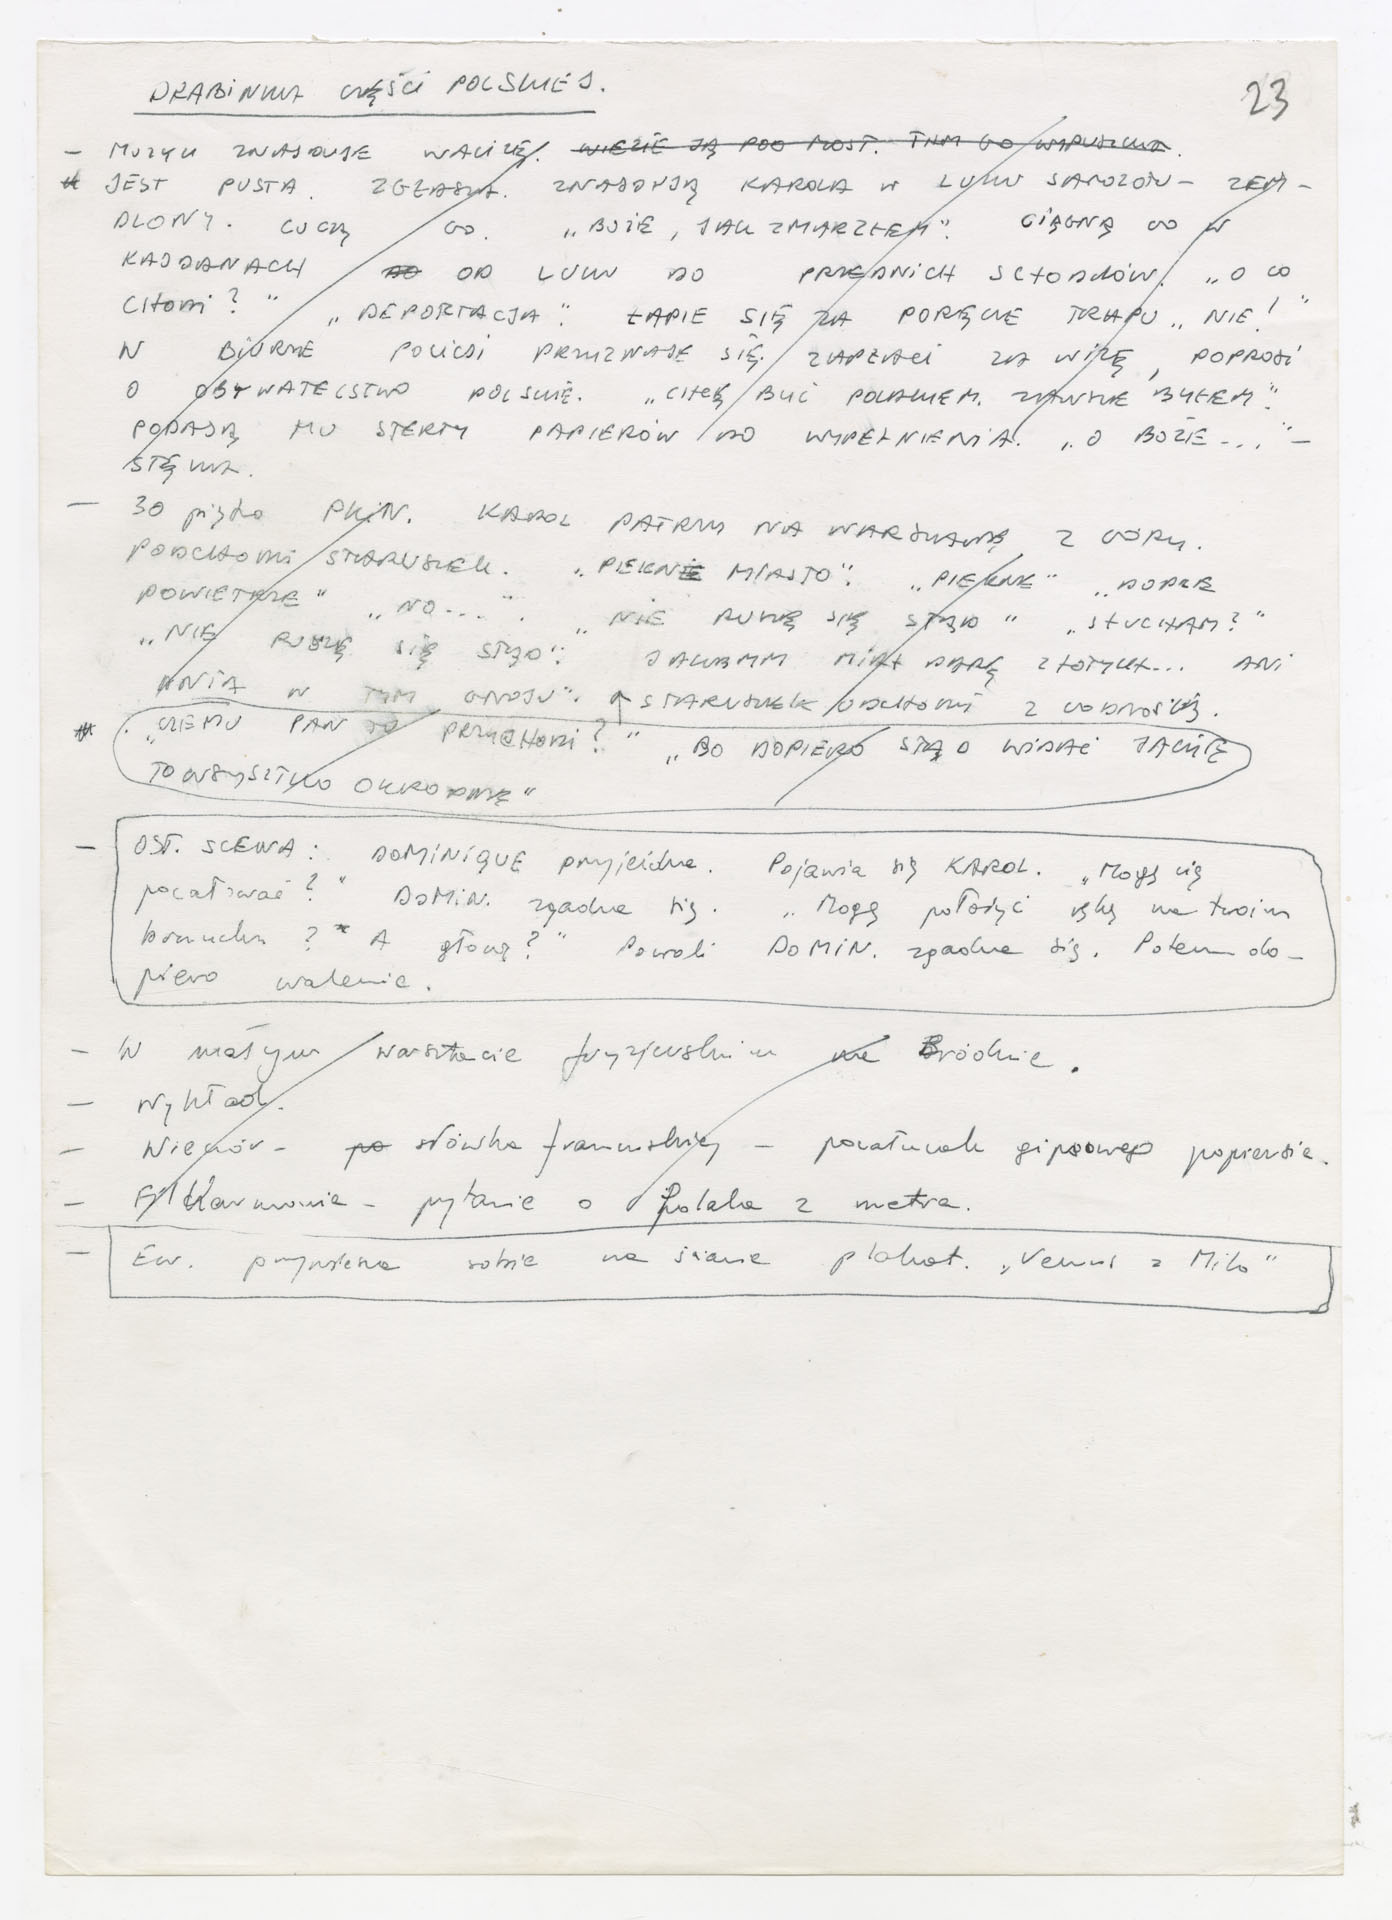 DRABINKA CZĘŚCI POLSKIEJ.
23
– MUZYK ZNAJDUJE WALIZĘ. WIEZIE JĄ POD MOST. TAM GO WYPUSZCZA.
JEST PUSTA. ZGŁASZA. ZNAJDUJĄ KAROLA W LUKU SAMOLOTU – ZEM–
DLONY. CUCĄ GO. „BOŻE, JAK ZMARZŁEM". CIĄGNĄ GO W
KAJDANACH OD LUKU DO PRZEDNICH SCHODKÓW. „O CO
CHODZI?" „DEPORTACJA". ŁAPIE SIĘ ZA PORĘCZE TRAPU „NIE!"
W BIURZE POLICJI PRZYZNAJE SIĘ. ZAPŁACI ZA WIZĘ, POPROSI
O OBYWATELSTWO POLSKIE. „CHCĘ BYĆ POLAKIEM. ZAWSZE BYŁEM".
PODAJĄ MU STERTY PAPIERÓW DO WYPEŁNIENIA. „O BOŻE..." –
STĘKA.
– 30 piętro PKiN. KAROL PATRZY NA WARSZAWĘ Z GÓRY.
PODCHODZI STARUSZEK. „PIĘKNE MIASTO". „PIĘKNE" „DOBRE
POWIETRZE" „NO...". „NIE RUSZĘ SIĘ STĄD" „SŁUCHAM?"
„NIE RUSZĘ SIĘ STĄD". JAKBYM MIAŁ PARĘ ZŁOTYCH... ANI
DNIA W TYM GNOJU". ↑ STARUSZEK ODCHODZI Z GODNOŚCIĄ.
„CZEMU PAN TO PRZYCHODZI?" „BO DOPIERO STĄD WIDAĆ JAKIE
TO WSZYSTKO OKROPNE"
– OST. SCENA: DOMINIQUE przyjeżdża. Pojawia się KAROL. „Mogę cię
pocałować?" DOMIN. zgadza się. „Mogę położyć rękę na twoim
brzuchu? A głowę?" Powoli DOMIN. zgadza się. Potem do–
piero walenie.
– W małym warsztacie fryzjerskim na Bródnie.
– Wykład.
– Wieczór – po słówka francuskiej – pocałunek gipsowego popiersia.
– Filharmonia – pytanie o Polaka z metra.
– Ew. przywiesza sobie na ścianie plakat. „Venus z Milo"